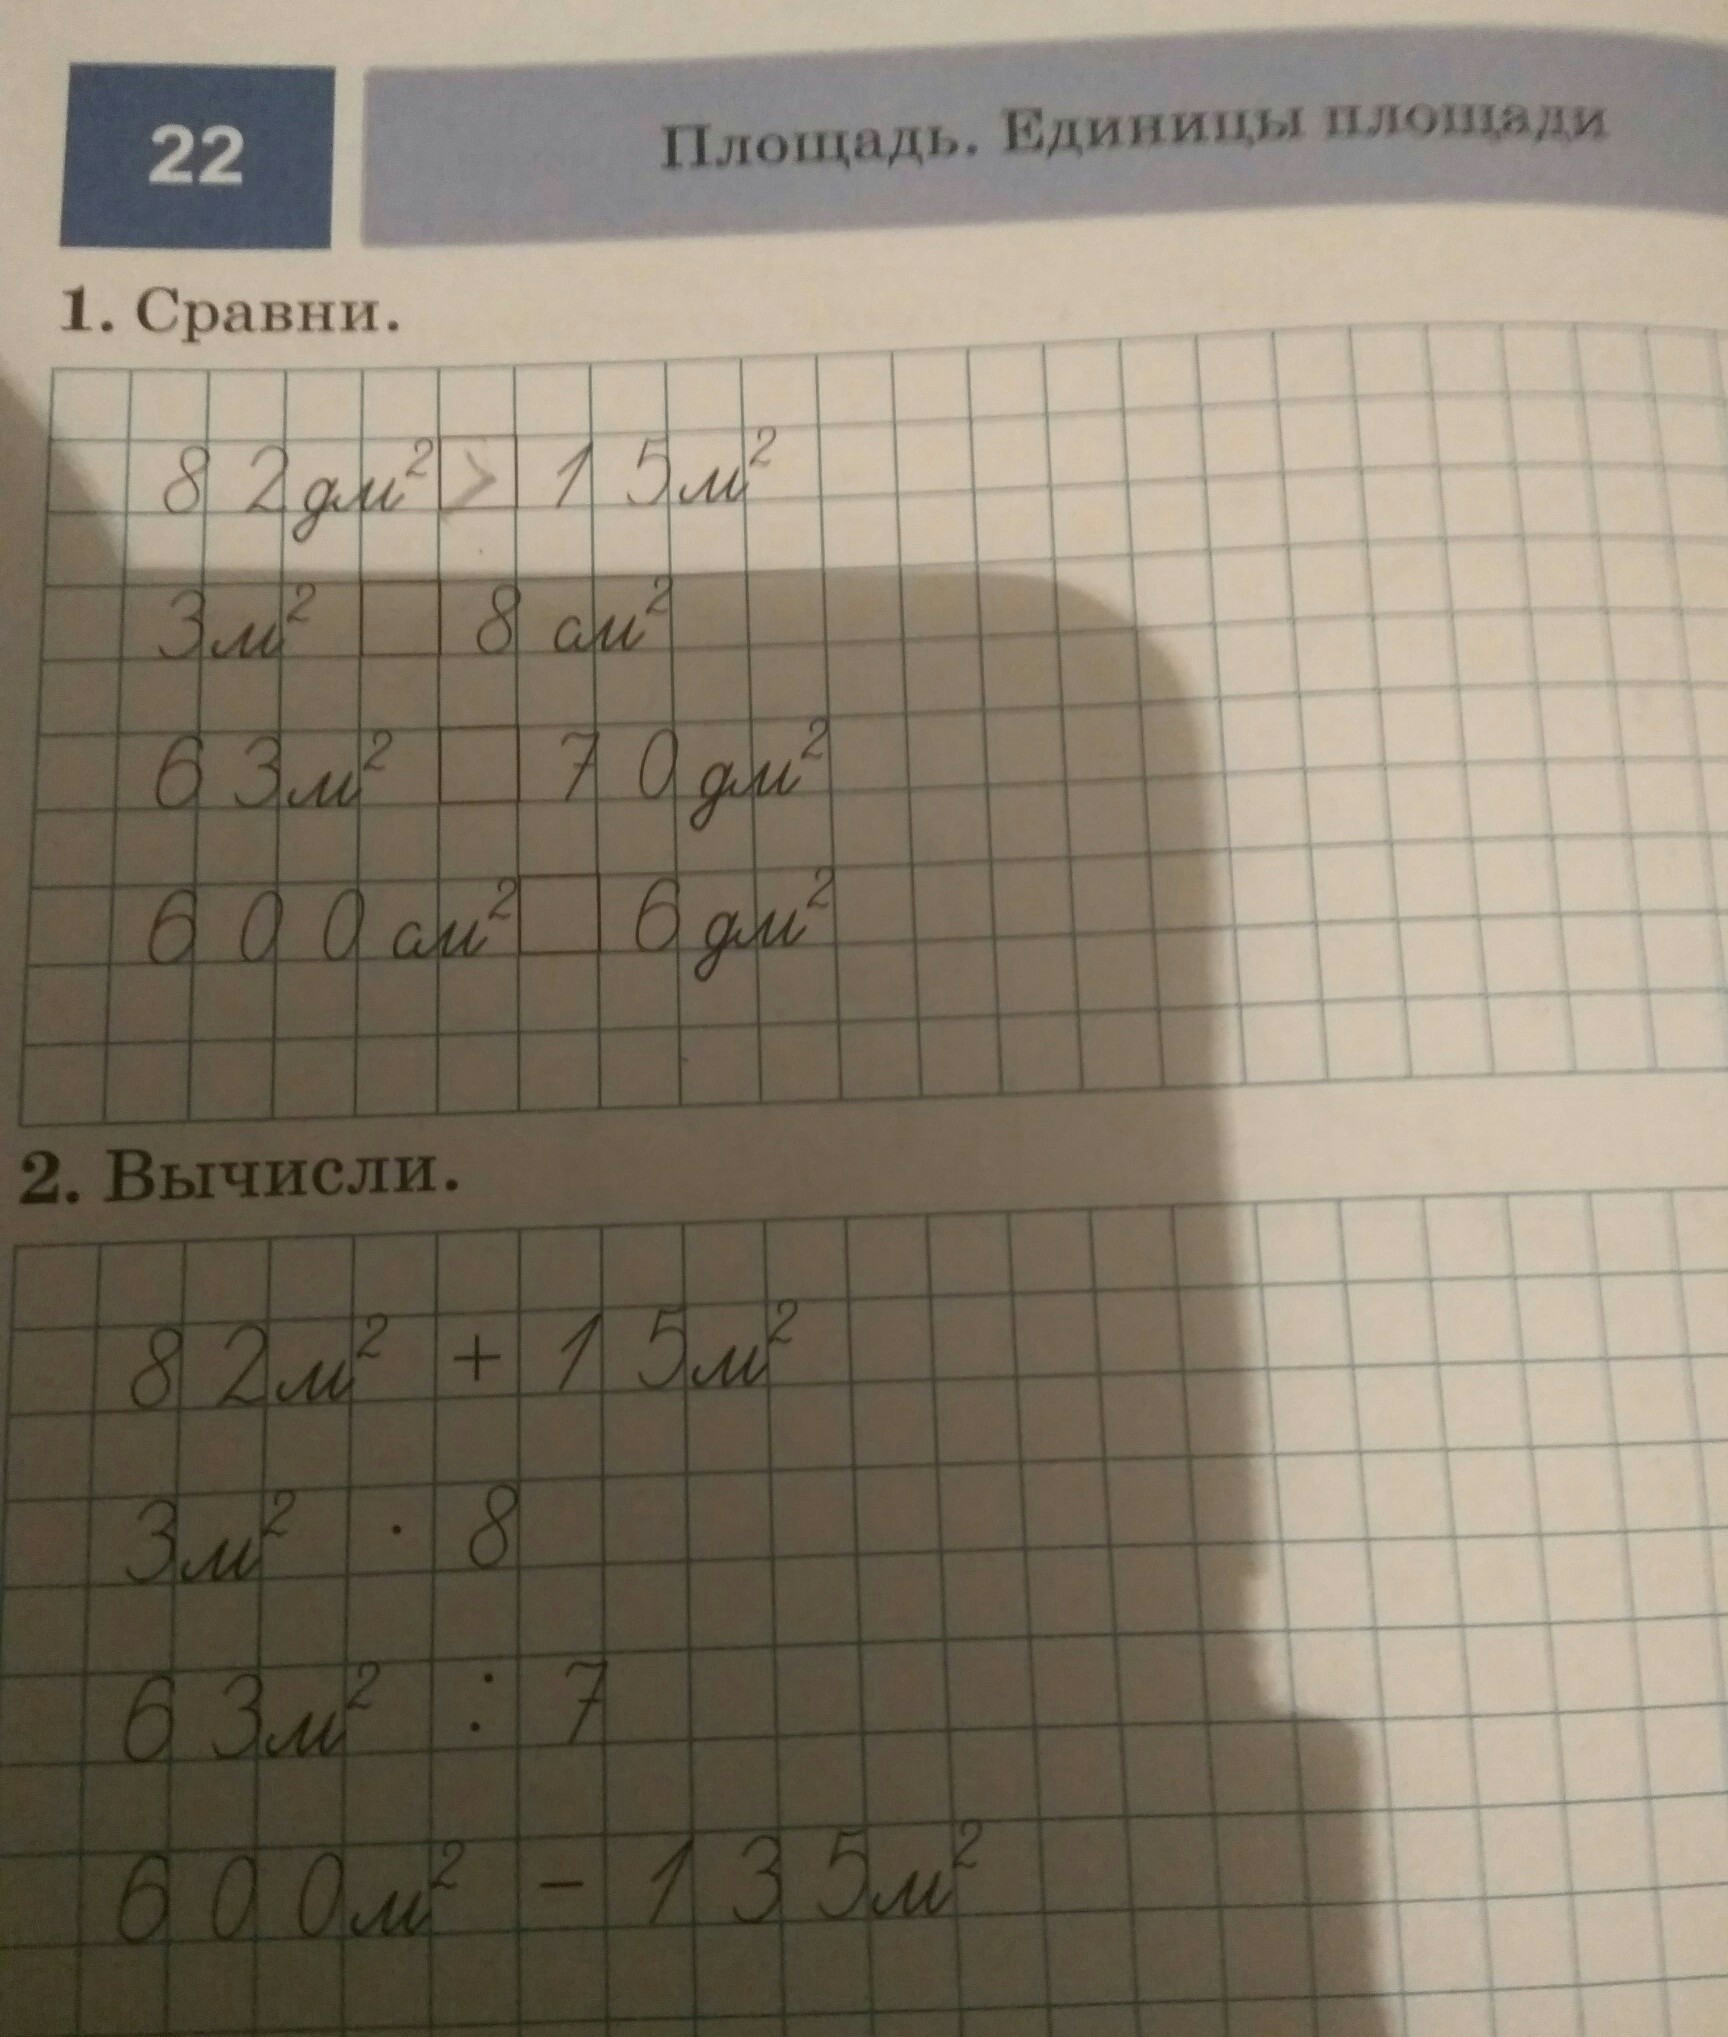 22
Площадь. Единицы площади
1. Сравни.
82дм² > 15м²
3м² 8 см²
63м² 70дм²
600см² 6дм²
2. Вычисли.
82м² + 15м²
3м² · 8
63м² : 7
600м² - 135м²